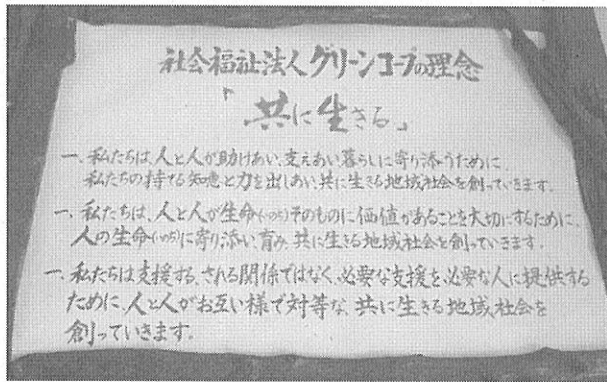 社会福祉法人グリーンコープの理念
「共に生きる」
一、私たちは、人と人が助けあい、支えあい、暮らしに寄り添うために、
私たちの持てる知恵と力を出しあい、共に生きる地域社会を創っていきます。
一、私たちは、人と人が生命(いのち)そのものに価値があることを大切にするために、
人の生命(いのち)に寄り添い、育み、共に生きる地域社会を創っていきます。
一、私たちは支援する、される関係ではなく、必要な支援を、必要な人に提供する
ために、人と人がお互い様で対等な、共に生きる地域社会を
創っていきます。